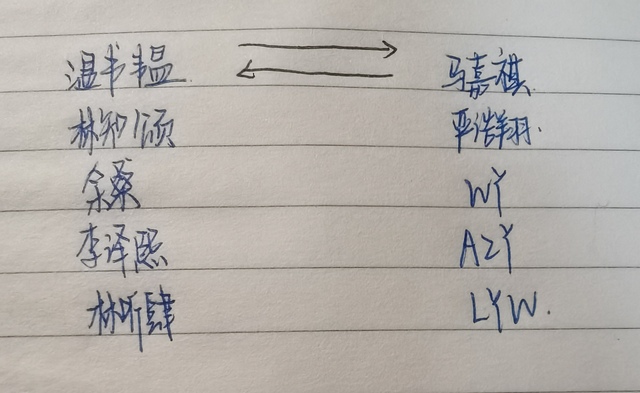 温书韫 马嘉祺
林知颂 严浩翔.
余桑 WY
李泽熙 AZY
林昕肆 LYW.